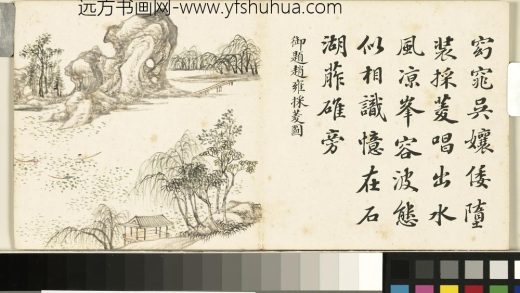 远方书画网-www.yfshuhua.com
窈窕吳孃倭墮
裝採菱唱出水
風凉峯容波態
似相識憶在石
湖葄碓旁
御題趙雍採菱圖